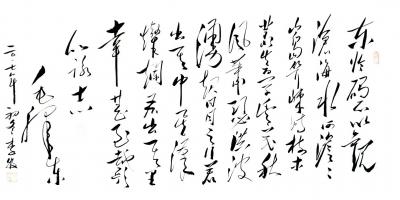 东临碣石以观
沧海水何澹澹
山岛竦峙树木
丛生百草丰茂秋
风萧瑟洪波
涌起日月之行若
出其中星汉
灿烂若出其里
幸甚至哉歌
以咏志
毛泽东
二〇一七年